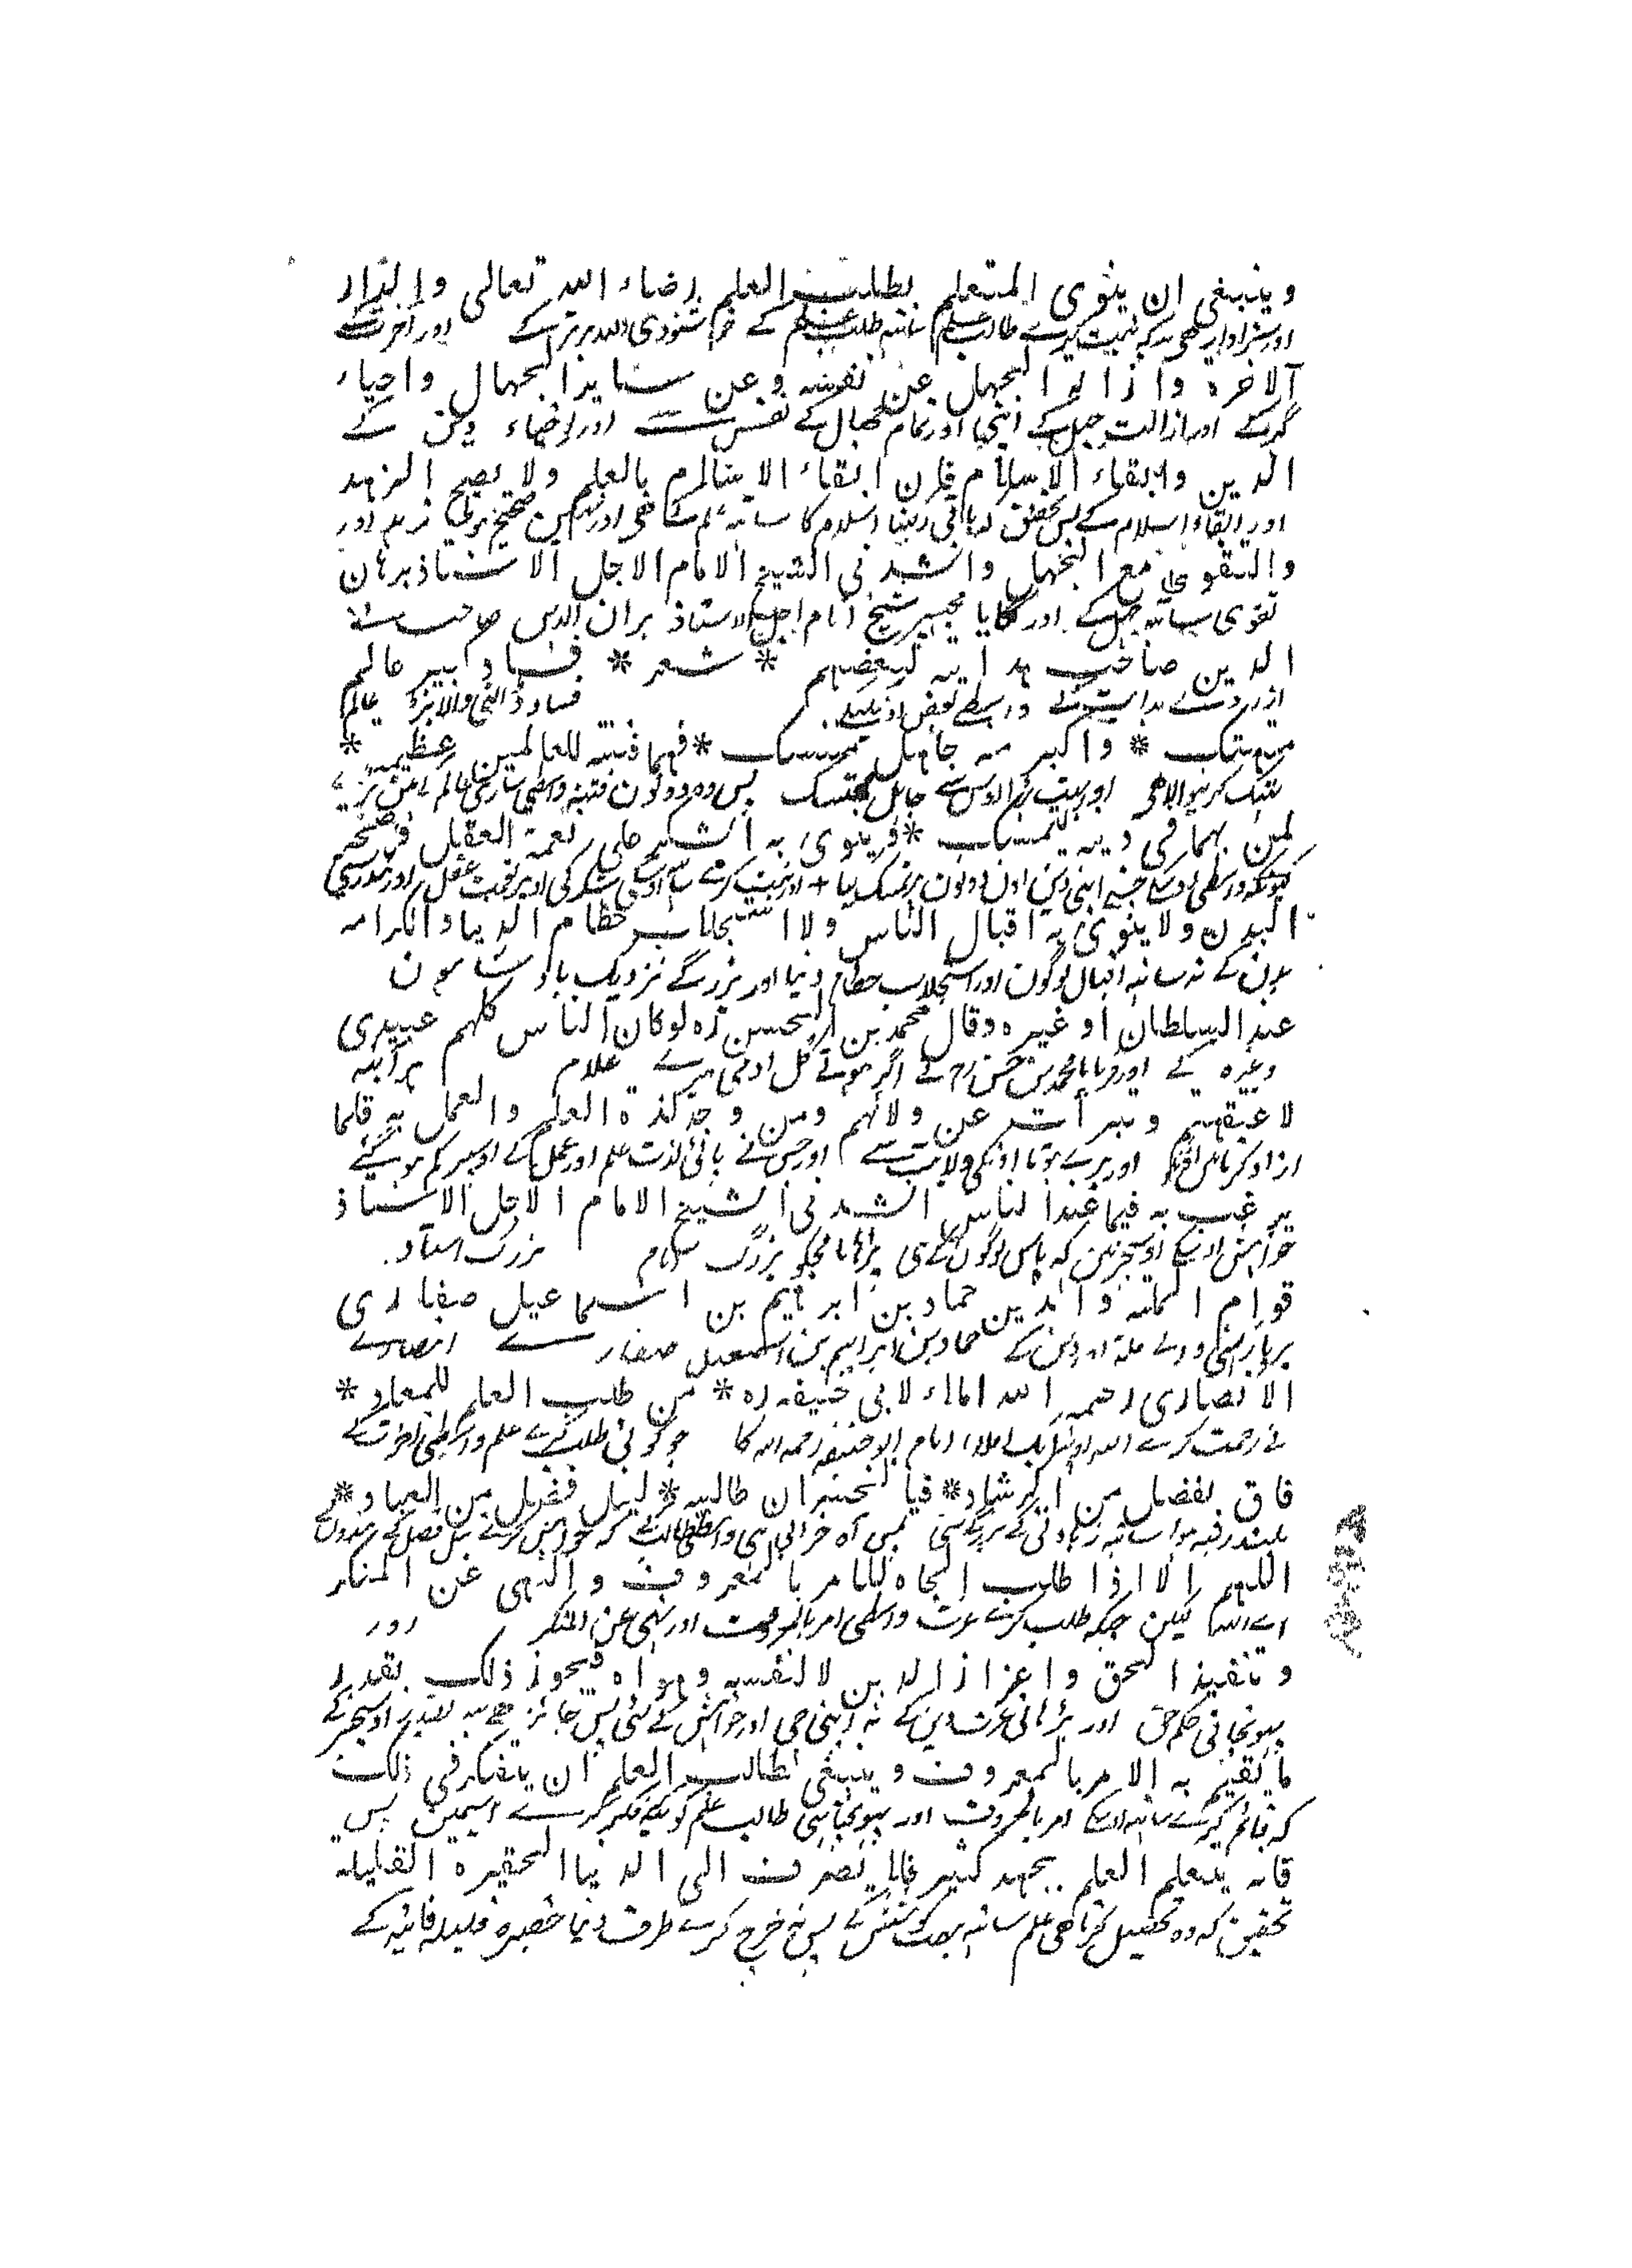 وينبغى ان ينوى المتعلم بطلب العلم رضاء الله تعالى والدار
اور سزاوار هى كه نيت كرے طالب علم ساتهه طلب علم كے خوشنودى الله برتر كے اور آخرت كے
الاخرة وازالة الجهل عن نفسه وعن سائر الجهال واحياء
گهر كے اور ازالت جهل كے اپنى اور تمام جهال كے نفس سے اور احياء دين كے
الدين وابقاء الاسلام فان ابقاء الاسلام بالعلم ولا يصح الزهد
اور ابقاء اسلام كے پس تحقيق باقى رہنا اسلام كا ساتهه علم كے هى اور نہين صحيح ہوتا زہد اور
والتقوى مع الجهل وانشدنى الشيخ الامام الاجل الاستاذ برهان
تقوى ساتهه جهل كے اور شيخ امام اجل الاستاذ برہان الدين صاحب
الدين صاحب هداية لبعضهم * شعر * فساد كبير عالم
ہدايت نے واسطے بعض كے فساد عالم
متهتك * واكبر منه جاهل متنسك * فهما فتنة للعالمين عظيمة *
اور بہت بڑا اوس سے جاهل متنسك پس وه دونون فتنه واسطى سارى عالم كے
لمن بهما فى دينه يتمسك * وينوى به الشكر على نعمة العقل وصحة
واسطى اوسكے جسنے اپنى دين اون دونون پر تمسك كيا + اور نيت كرے ساتهه اوسكے شكر كى اوپر نعمت عقل اور تندرستى
البدن ولا ينوى به اقبال الناس ولا استجلاب حطام الدنيا والكرامة
بدن كے نه ساتهه اقبال لوگون اور استجلاب حطام دنيا اور بزرگے نزديك بادشاہون
عند السلطان او غيره وقال محمد بن الحسن ره لو كان الناس كلهم عبيدى
وغيره كے اور فرمايا محمد بن حسن رح نے اگر ہوتے كل ادمى ميرے غلام ہر آئينه
لاعتقتهم وتبرأت عن ولائهم ومن وجد لذة العلم والعمل به قلما
ازاد كرتا اور برے ہوتا اونكى ولايت سے اور جس نے پائى لذت علم اور عمل كے اوسپر كم ہو كے
يرغب به فيما عند الناس انشدنى الشيخ الامام الاجل الاستاذ
خواہش اوسكے اوس چيز مين كه پاس لوگون كے هى پڑهايا مجكو بزرگ امام بزرگ استاد
قوام الملة والدين حماد بن ابراهيم بن اسماعيل صفارى
ملة اور دين كے حماد بن ابراہيم بن اسمعيل صفار سے انصارے
الانصارى رحمه الله املاء لابى حنيفه ره * من طلب العلم للمعاد *
نے رحمت كرے الله املاء امام ابو حنيفه رحمه الله كا جو كوئى طلب كرے علم واسطى آخرت كے
فاق بفضل من الرشاد * فيا لخسران طالبيه * لنيل فضل من العباد *
بلند رتبه ہوا ساتهه زيادتى كے بزرگى سى پس آه خرابى هى واسطى طالب كے كه خواہش كرے فضل كے بندون سے
اللهم الا اذا طلب الجاه للامر بالمعروف والنهى عن المنكر
اے الله ليكن جبكه طلب كرے عزت واسطى امر بالمعروف اور نهى عن المنكر اور
وتنفيذ الحق واعزاز الدين لا لنفسه وهواه فيجوز ذلك بقدر
پہونچانى حكم حق اور بڑهانى عزت دين كے نه اپنى جى اور خواہش كے لئى پس جائز هے يه بقدر اوس چيز كے
ما يقيم به الامر بالمعروف وينبغى لطالب العلم ان يتفكر فى ذلك
كه قائم كرے ساتهه اوسكے امر بالمعروف اور طالب علم كو كه فكر كرے اسمين پس
فانه يتعلم العلم بجهد كثير فلا يصرف الى الدنيا الحقيرة القليلة
تحقيق كه وه تحصيل كرتا هى علم ساتهه بہت كوشش كے پس نه خرچ كرے طرف دنيا حقيره قليله فانيه كے